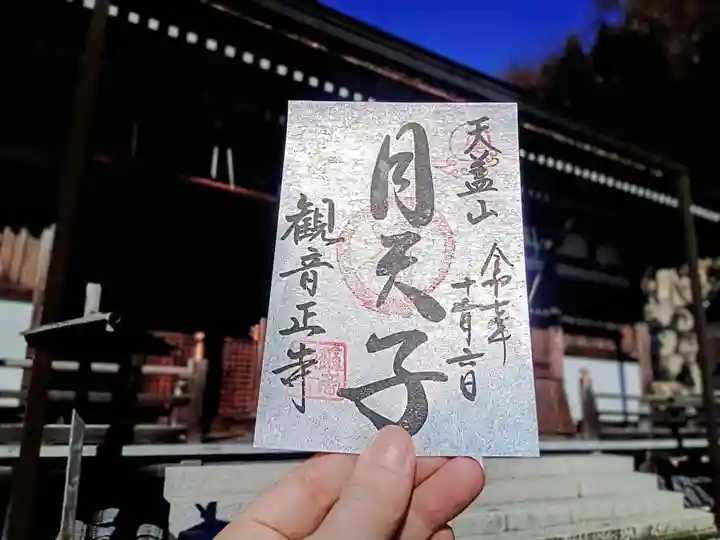 天蓋山
令和七年
十一月二日
月天子
観音正寺